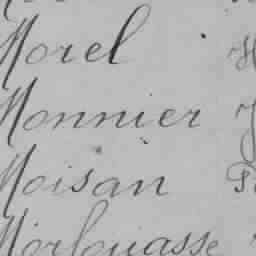 Morel
Monnier
Moisan
Morlouasse